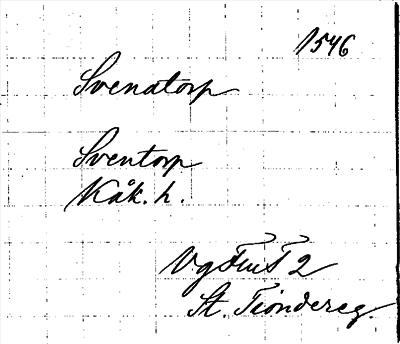 1546
Svenatorp
Sventorp
Kåk. h.
Vg Fiu F 2
St. Tiondereg.